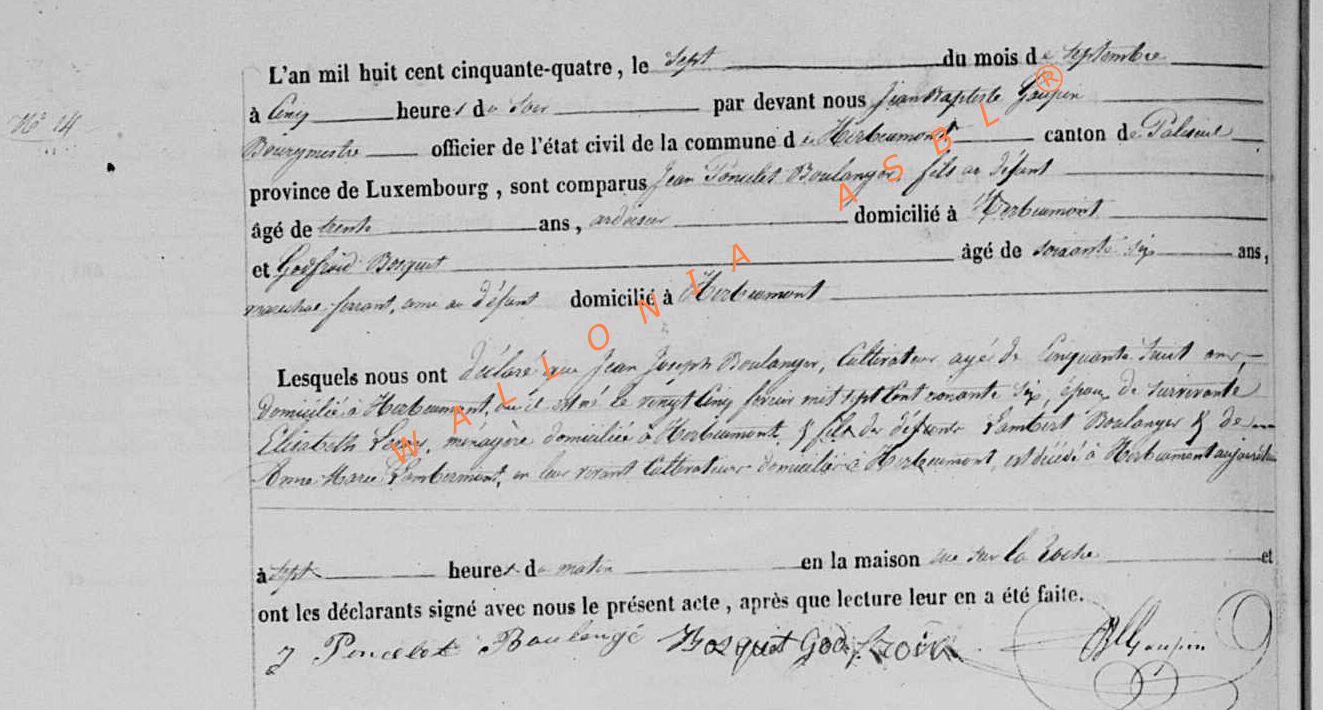 N° 14
L'an mil huit cent cinquante-quatre, le sept du mois de septembre
à cinq heures du soir par devant nous Jean Baptiste Goupin
Bourgmestre officier de l'état civil de la commune de Herbeumont canton de Paliseul
province de Luxembourg, sont comparus Jean Poncelet Boulanger fils au défunt
âgé de trente ans, ardoisier domicilié à Herbeumont
et Godfroid Bosquet âgé de soixante six ans,
marechal ferrant, ami au défunt domicilié à Herbeumont
Lesquels nous ont déclaré que Jean Joseph Boulanger, Cultivateur agé de Cinquante huit ans
domicilié à Herbeumont, où il est né le vingt cinq février mil sept cent nonante six, époux de survivante
Elisabeth ménagère domiciliée à Herbeumont, & fils des défunts Lambert Boulanger & de
Anne Marie Lambermont, en leur vivant Cultivateurs domiciliés à Herbeumont, est décédé à Herbeumont aujourd'hui
à sept heures du matin en la maison rue sur la roche et
ont les déclarants signé avec nous le présent acte, après que lecture leur en a été faite.
J Poncelet Boulangé Bosquet Godfroid JBGoupin
WALLONIA ASBL ®